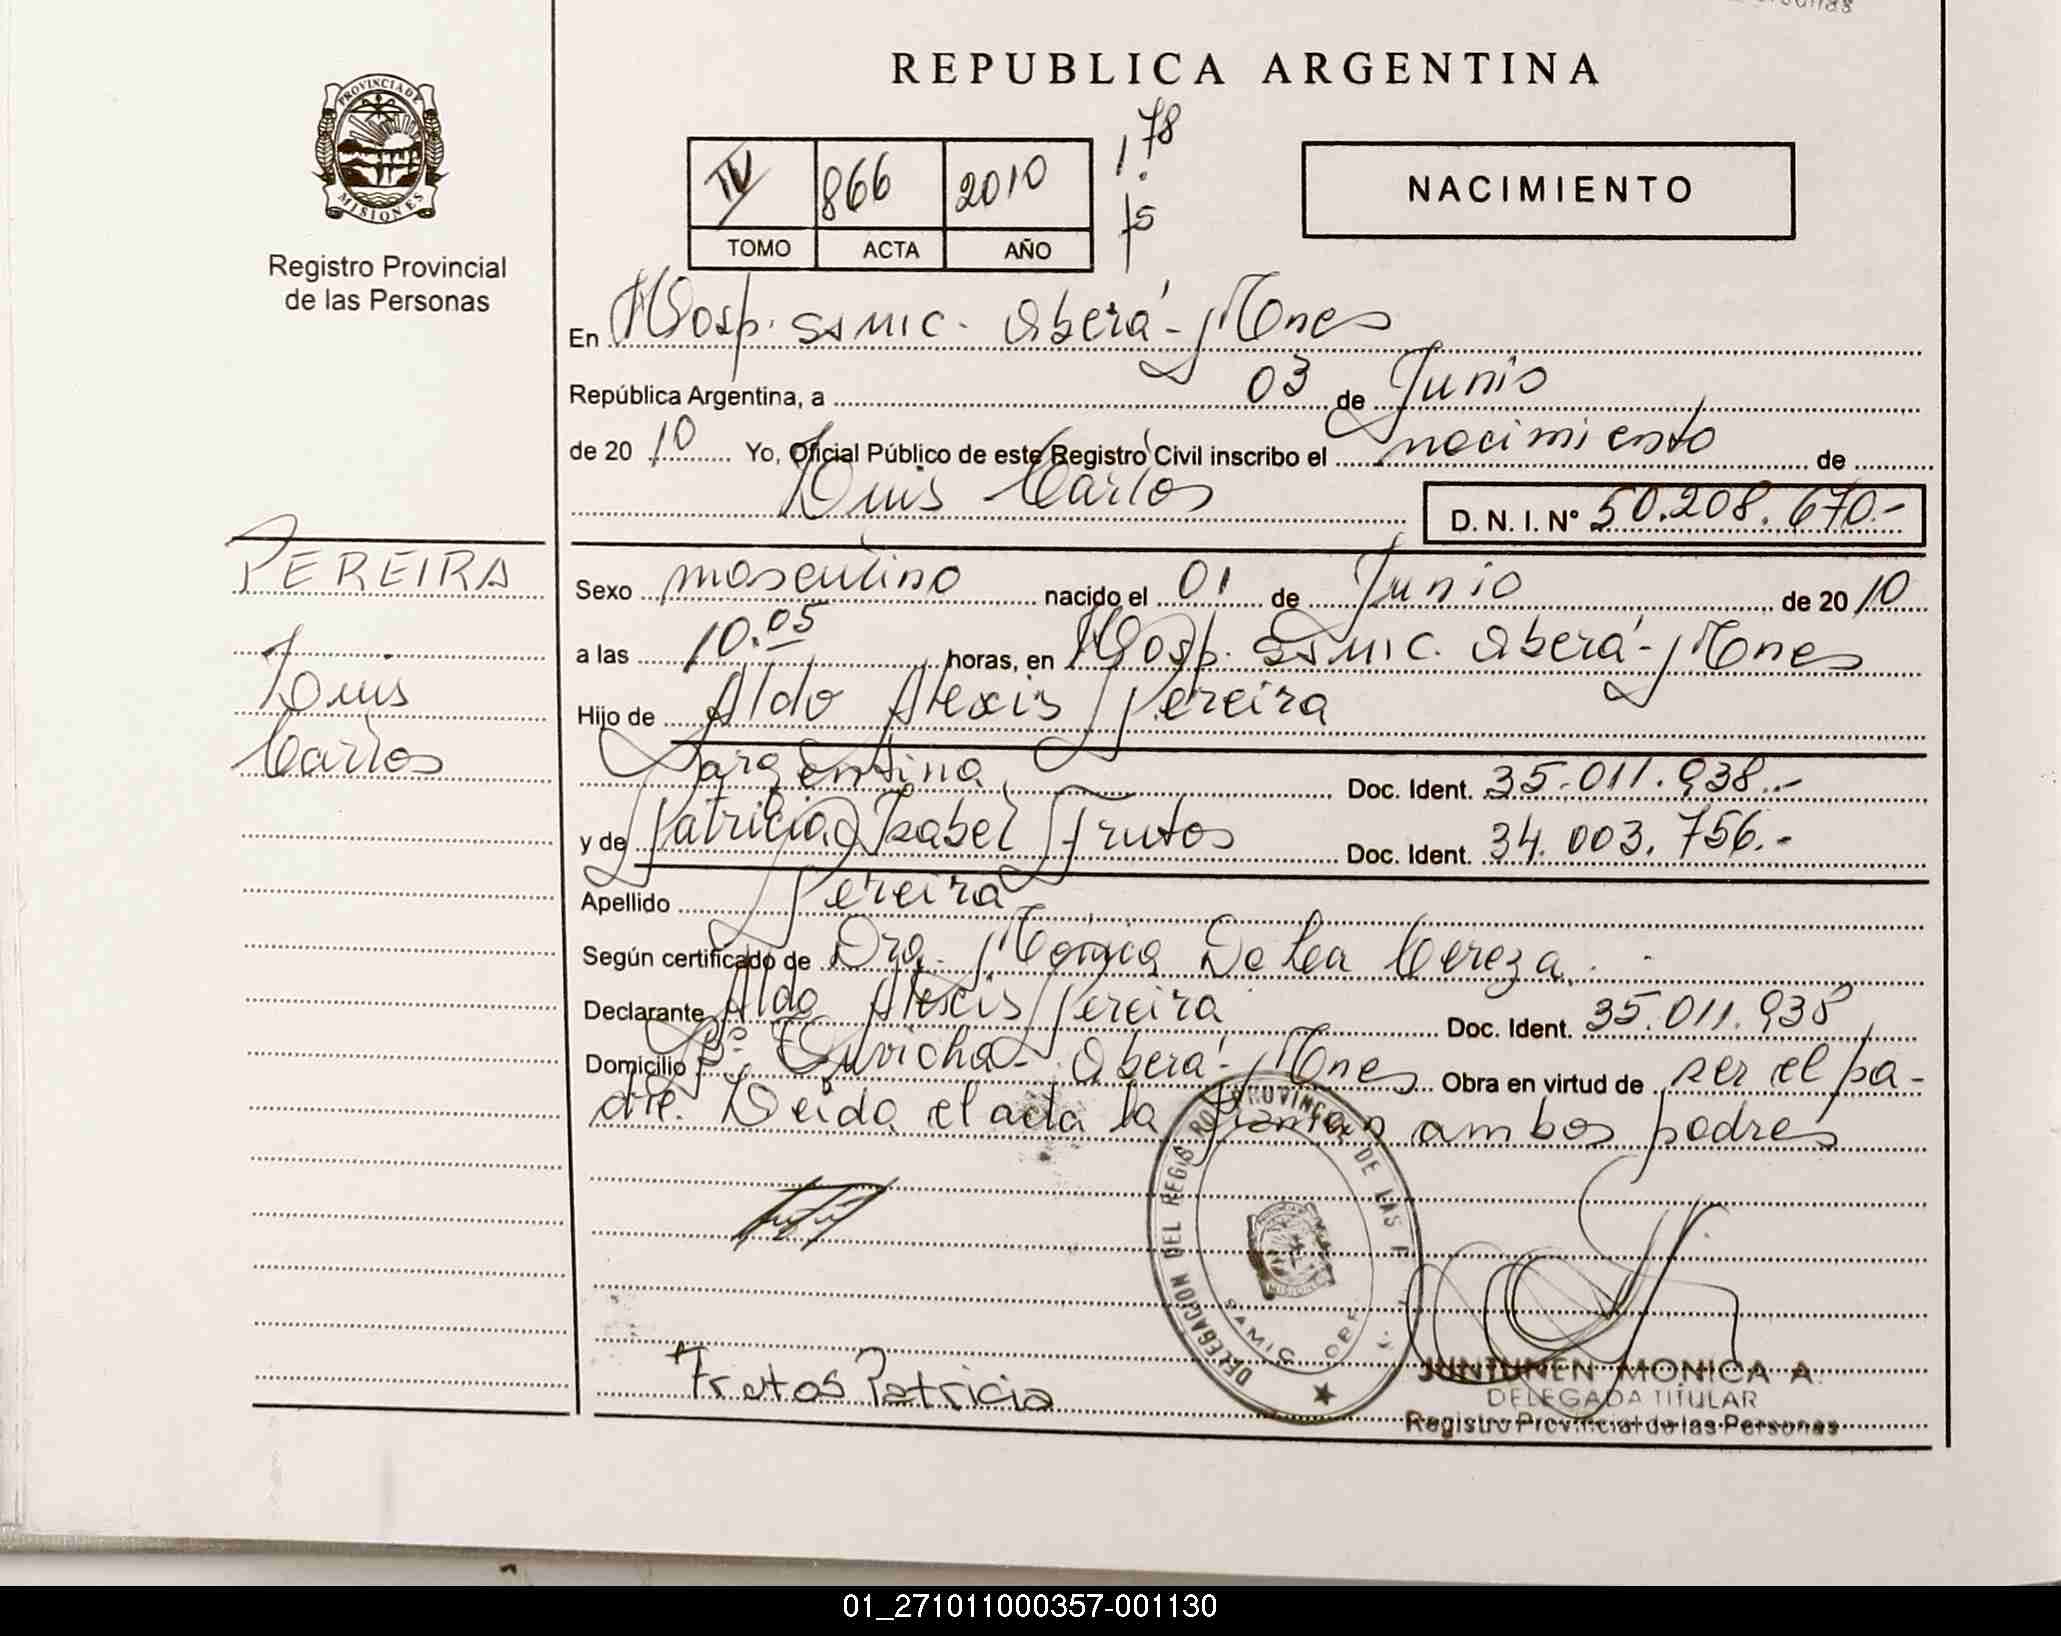 REPUBLICA ARGENTINA
PROVINCIA DE
MISIONES
Registro Provincial
de las Personas
IV 866 2010
TOMO ACTA AÑO
1.78
fs
NACIMIENTO
En Hosp. SAMIC. Oberá - Mnes
República Argentina, a 03 de Junio
de 20 10 Yo, Oficial Público de este Registro Civil inscribo el nacimiento de
Luis Carlos D. N. I. N° 50.208.670.-
PEREIRA
Luis
Carlos
Sexo masculino nacido el 01 de Junio de 20 10
a las 10.05 horas, en Hosp. SAMIC. Oberá - Mnes
Hijo de Aldo Alexis Pereira
Argentina Doc. Ident. 35.011.938.-
y de Patricia Isabel Frutos Doc. Ident. 34.003.756.-
Apellido Pereira
Según certificado de Dra. Mónica De La Cereza.
Declarante Aldo Alexis Pereira Doc. Ident. 35.011.938
Domicilio Bº Tuvicha - Oberá - Mnes Obra en virtud de ser el pa-
dre. Leida el acta la firman ambos padres
DELEGACION DEL REGIS PROVINCIAL DE LAS
SAMIC
Frutos Patricia
JUNTUNEN MONICA A.
DELEGADA TITULAR
Registro Provincial de las Personas
01_271011000357-001130